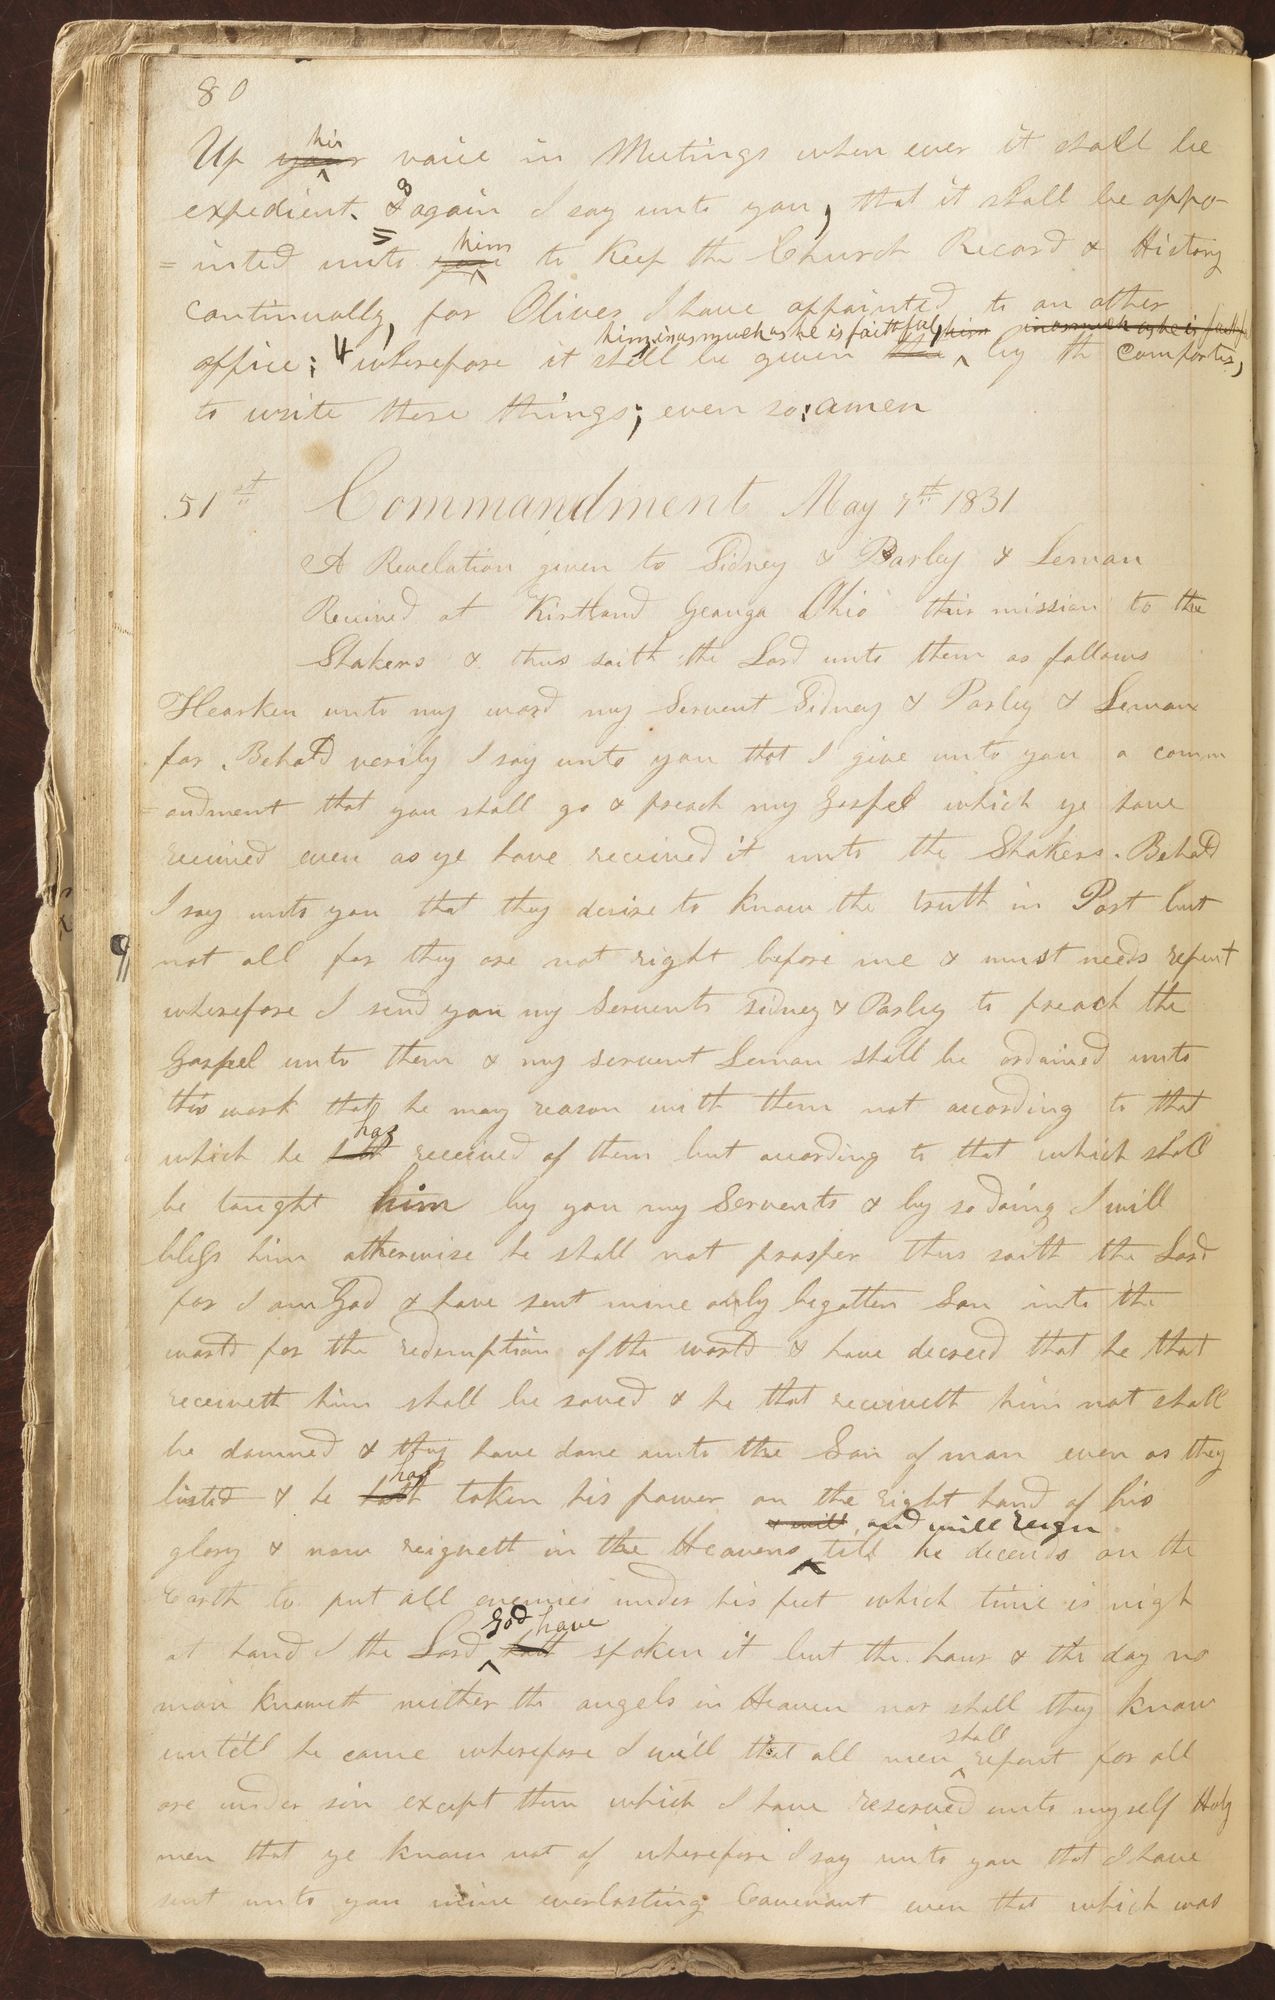 80
his
Up your voice in Meetings when ever it shall be
expedient. & again I say unto you, that it shall be appo-
him
=inted unto you to Keep the Church Record & History
continually, for Oliver I have appointed to an other
him, inasmuch as he is faithful, him inasmuch as he is faithful
office; wherefore it shall be given by th comforter,
to write these things; even so: amen
51st Commandment May 7th 1831
A Revelation given to Sidney & Parley & Leman
Received at Kirtland Geauga Ohio their mission to the
Shakers & thus saith the Lord unto them as follows
Hearken unto my word my Servent Sidney & Parley & Leman
for Behold verily I say unto you that I give unto you a comm
=andment that you shall go & preach my Gospel which ye have
received even as ye have received it unto the Shakers. Behold
I say unto you that they desire to know the truth in Part but
¶ not all for they are not right before me & must needs repent
wherefore I send you my Servents Sidney & Parley to preach the
Gospel unto them & my servent Leman shall be ordained unto
this work that he may reason with them not according to that
has
which he hath received of them but according to that which shall
be taught him by you my Servents & by so doing I will
bless him otherwise he shall not prosper thus saith the Lord
for I am God & have sent mine only begotten Son into the
world for the redemption of the world & have decreed that he that
receiveth him shall be saved & he that receiveth him not shall
be damned & they have done unto the Son of man even as they
has
listed & he hath taken his power on the right hand of his
& will, and will reign
glory & now reigneth in the Heavens till he decends on the
Earth to put all enemies under his feet which time is nigh
God have
at hand I the Lord hath spoken it but the hour & the day no
man knoweth neither the angels in Heaven nor shall they know
shall
untill he come wherefore I will that all men repent for all
are under sin except them which I have reserved unto myself Holy
men that ye know not of wherefore I say unto you that I have
sent unto you mine everlasting Covenant even that which was